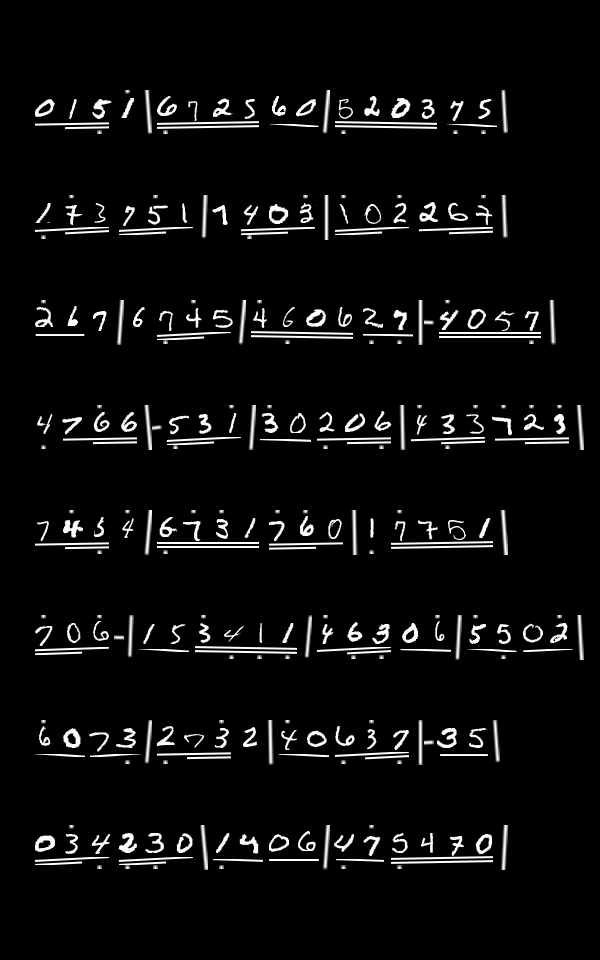 0 1 5 1 | 6 7 2 5 6 0 | 5 2 0 3 7 5 |
1 7 3 7 5 1 | 7 4 0 3 | 1 0 2 2 6 7 |
2 6 7 | 6 7 4 5 | 4 6 0 6 2 7 | - 4 0 5 7 |
4 7 6 6 | - 5 3 1 | 3 0 2 0 6 | 4 3 3 7 2 3 |
7 4 5 4 | 6 7 3 1 7 6 0 | 1 7 7 5 1 |
7 0 6 - | 1 5 3 4 1 1 | 4 6 3 0 6 | 5 5 0 2 |
6 0 7 3 | 2 7 3 2 | 4 0 6 3 7 | - 3 5 |
0 3 4 2 3 0 | 1 4 0 6 4 7 5 4 7 0 |